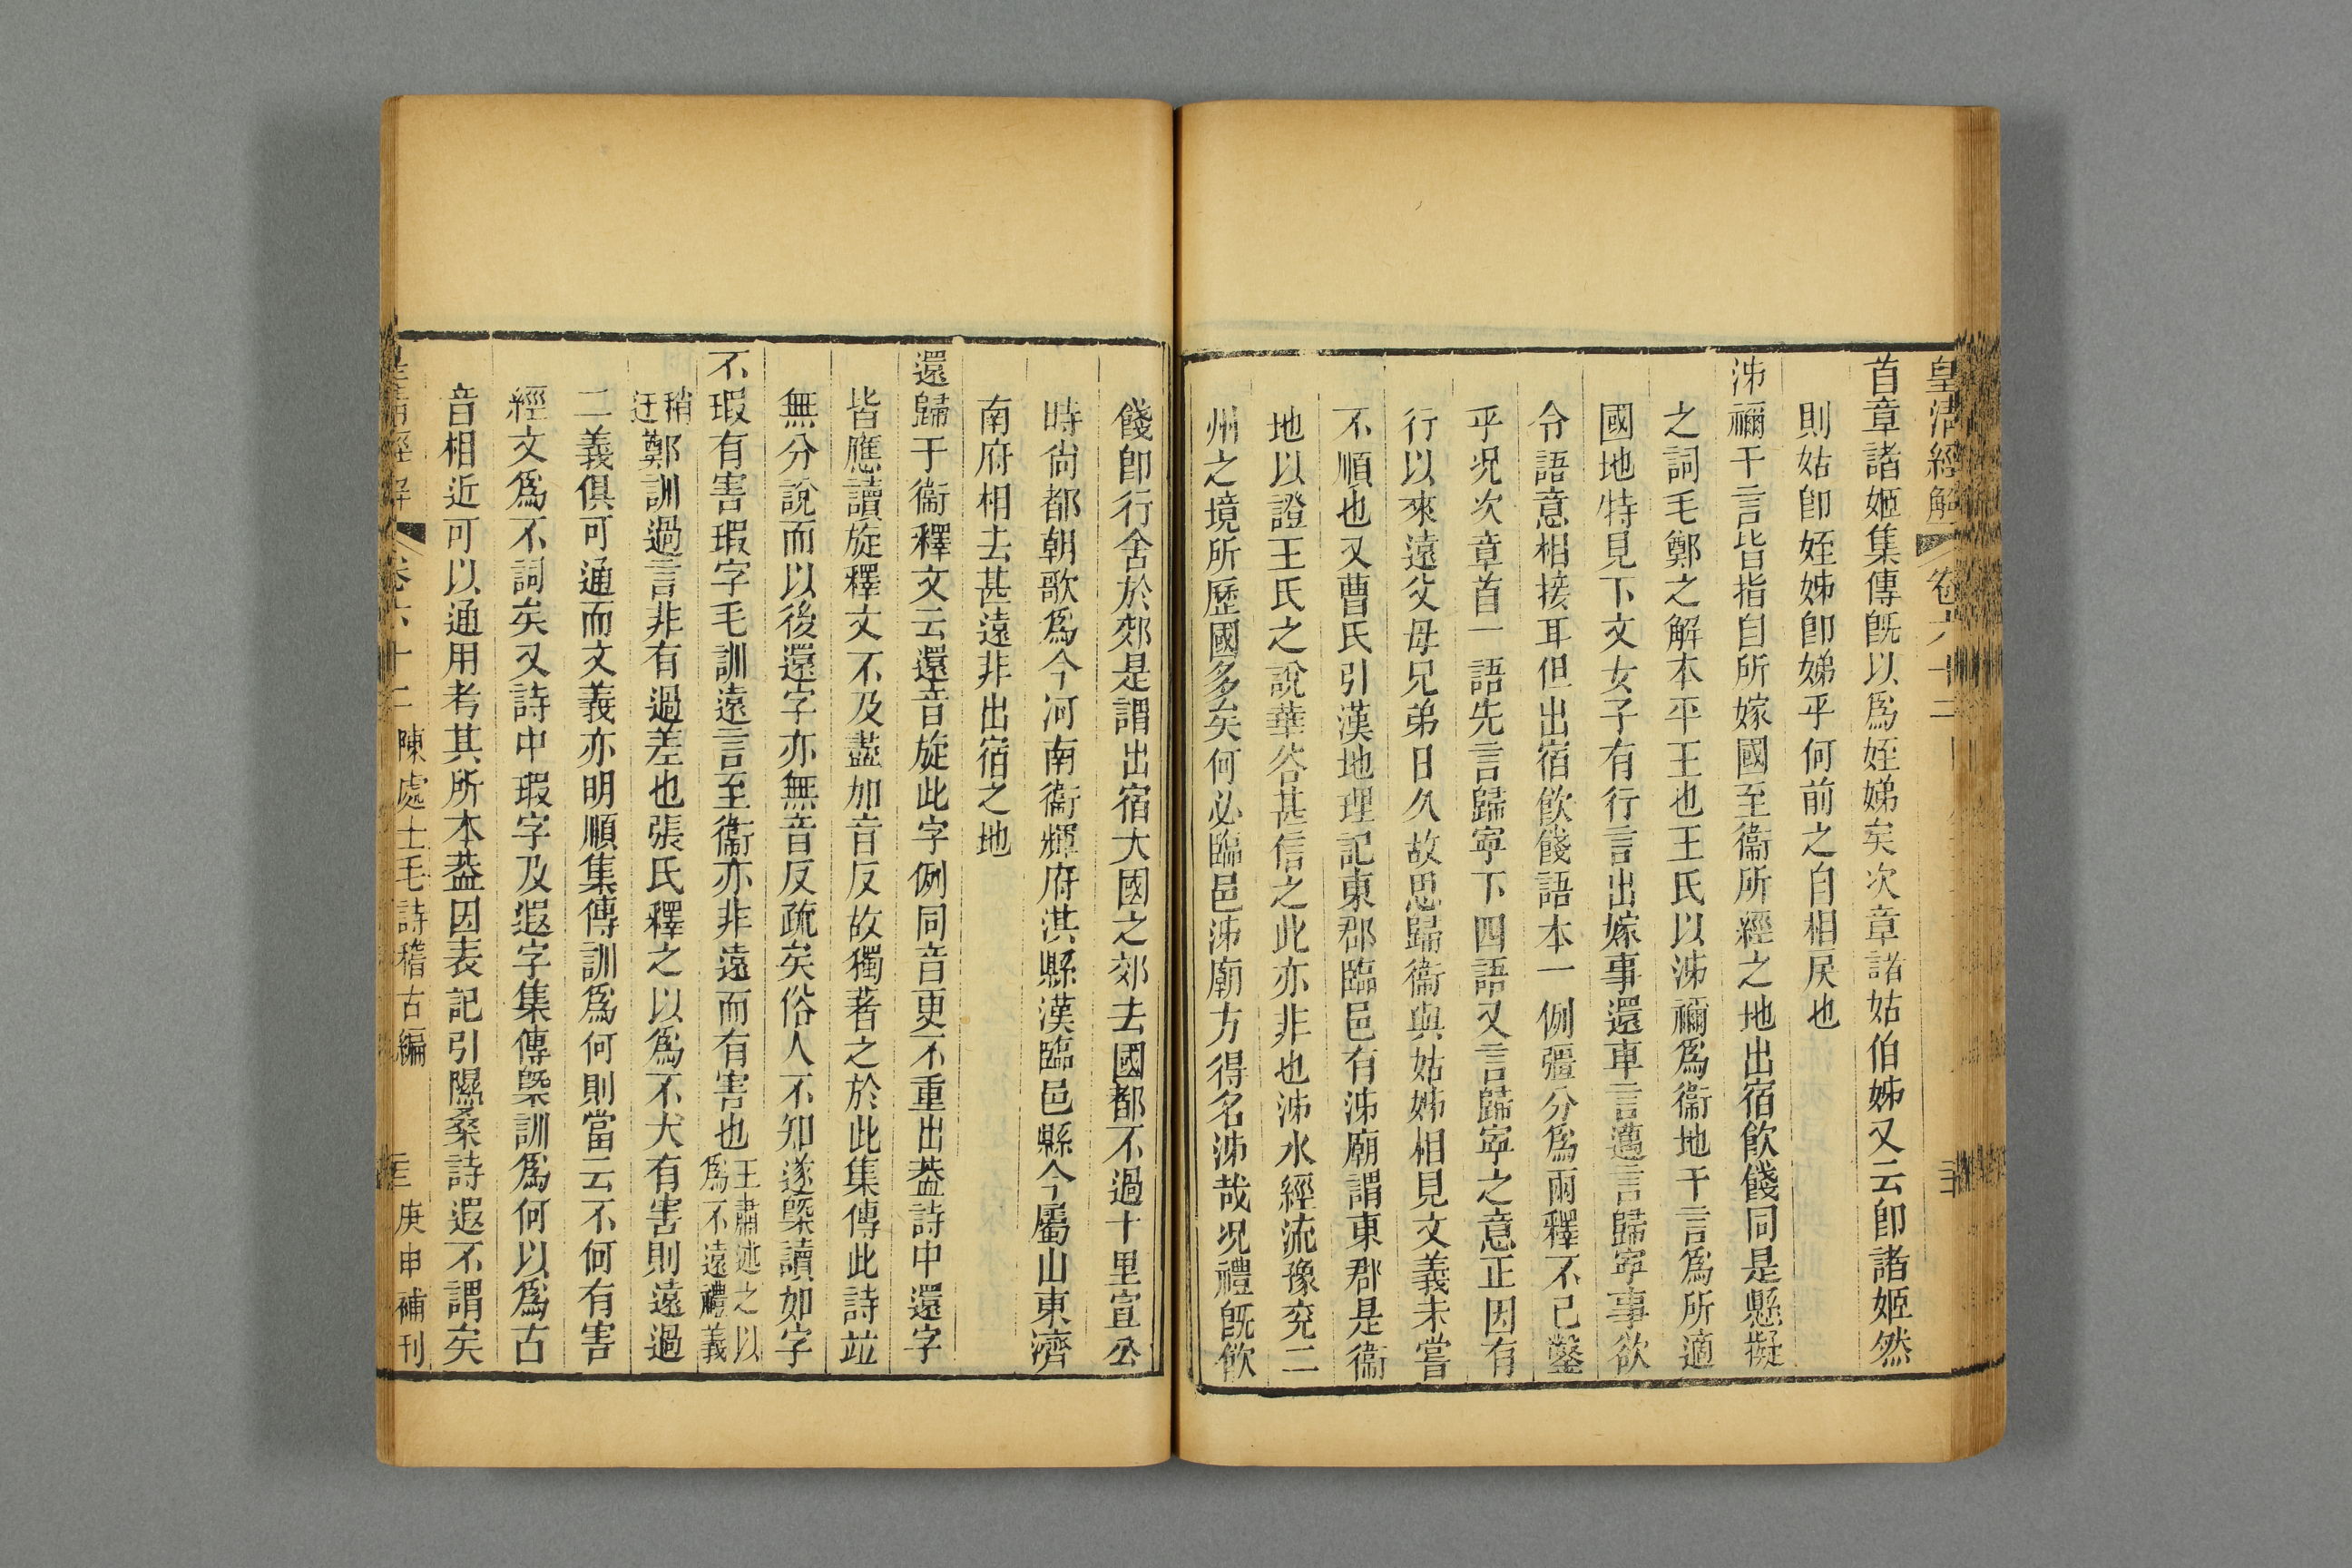 皇清經解 卷六十二
首章諸姬集傳旣以爲姪娣矣次章諸姑伯姊又云卽諸姬然
則姑卽姪姊卽娣乎何前之自相戾也
泲禰干言皆指自所嫁國至衞所經之地出宿飮餞同是懸擬
之詞毛鄭之解本平王也王氏以泲禰爲衞地干言爲所適
國地特見下文女子有行言出嫁事還車言邁言歸寧事欲
令語意相接耳但出宿飮餞語本一例彊分爲兩釋不已鑿
乎況次章首一語先言歸寧下四語又言歸寧之意正因有
行以來遠父母兄弟日久故思歸衞與姑姊相見文義未嘗
不順也又曹氏引漢地理記東郡臨邑有泲廟謂東郡是衞
地以證王氏之說華谷甚信之此亦非也泲水經流豫兖二
州之境所歷國多矣何必臨邑泲廟方得名泲哉況禮旣飮
餞卽行舍於郊是謂出宿大國之郊去國都不過十里宣公
時尙都朝歌爲今河南衞輝府淇縣漢臨邑縣今屬山東濟
南府相去甚遠非出宿之地
還歸于衞釋文云還音旋此字例同音更不重出葢詩中還字
皆應讀旋釋文不及盡加音反故獨著之於此集傳此詩竝
無分說而以後還字亦無音反疏矣俗人不知遂槩讀如字
不瑕有害瑕字毛訓遠言至衞亦非遠而有害也王肅述之以爲不遠禮義
稍迂鄭訓過言非有過差也張氏釋之以爲不大有害則遠過
二義俱可通而文義亦明順集傳訓爲何則當云不何有害
經文爲不詞矣又詩中瑕字及遐字集傳槩訓爲何以爲古
音相近可以通用考其所本葢因表記引隰桑詩遐不謂矣
皇清經解 卷六十二 陳處士毛詩稽古編 庚申補刊